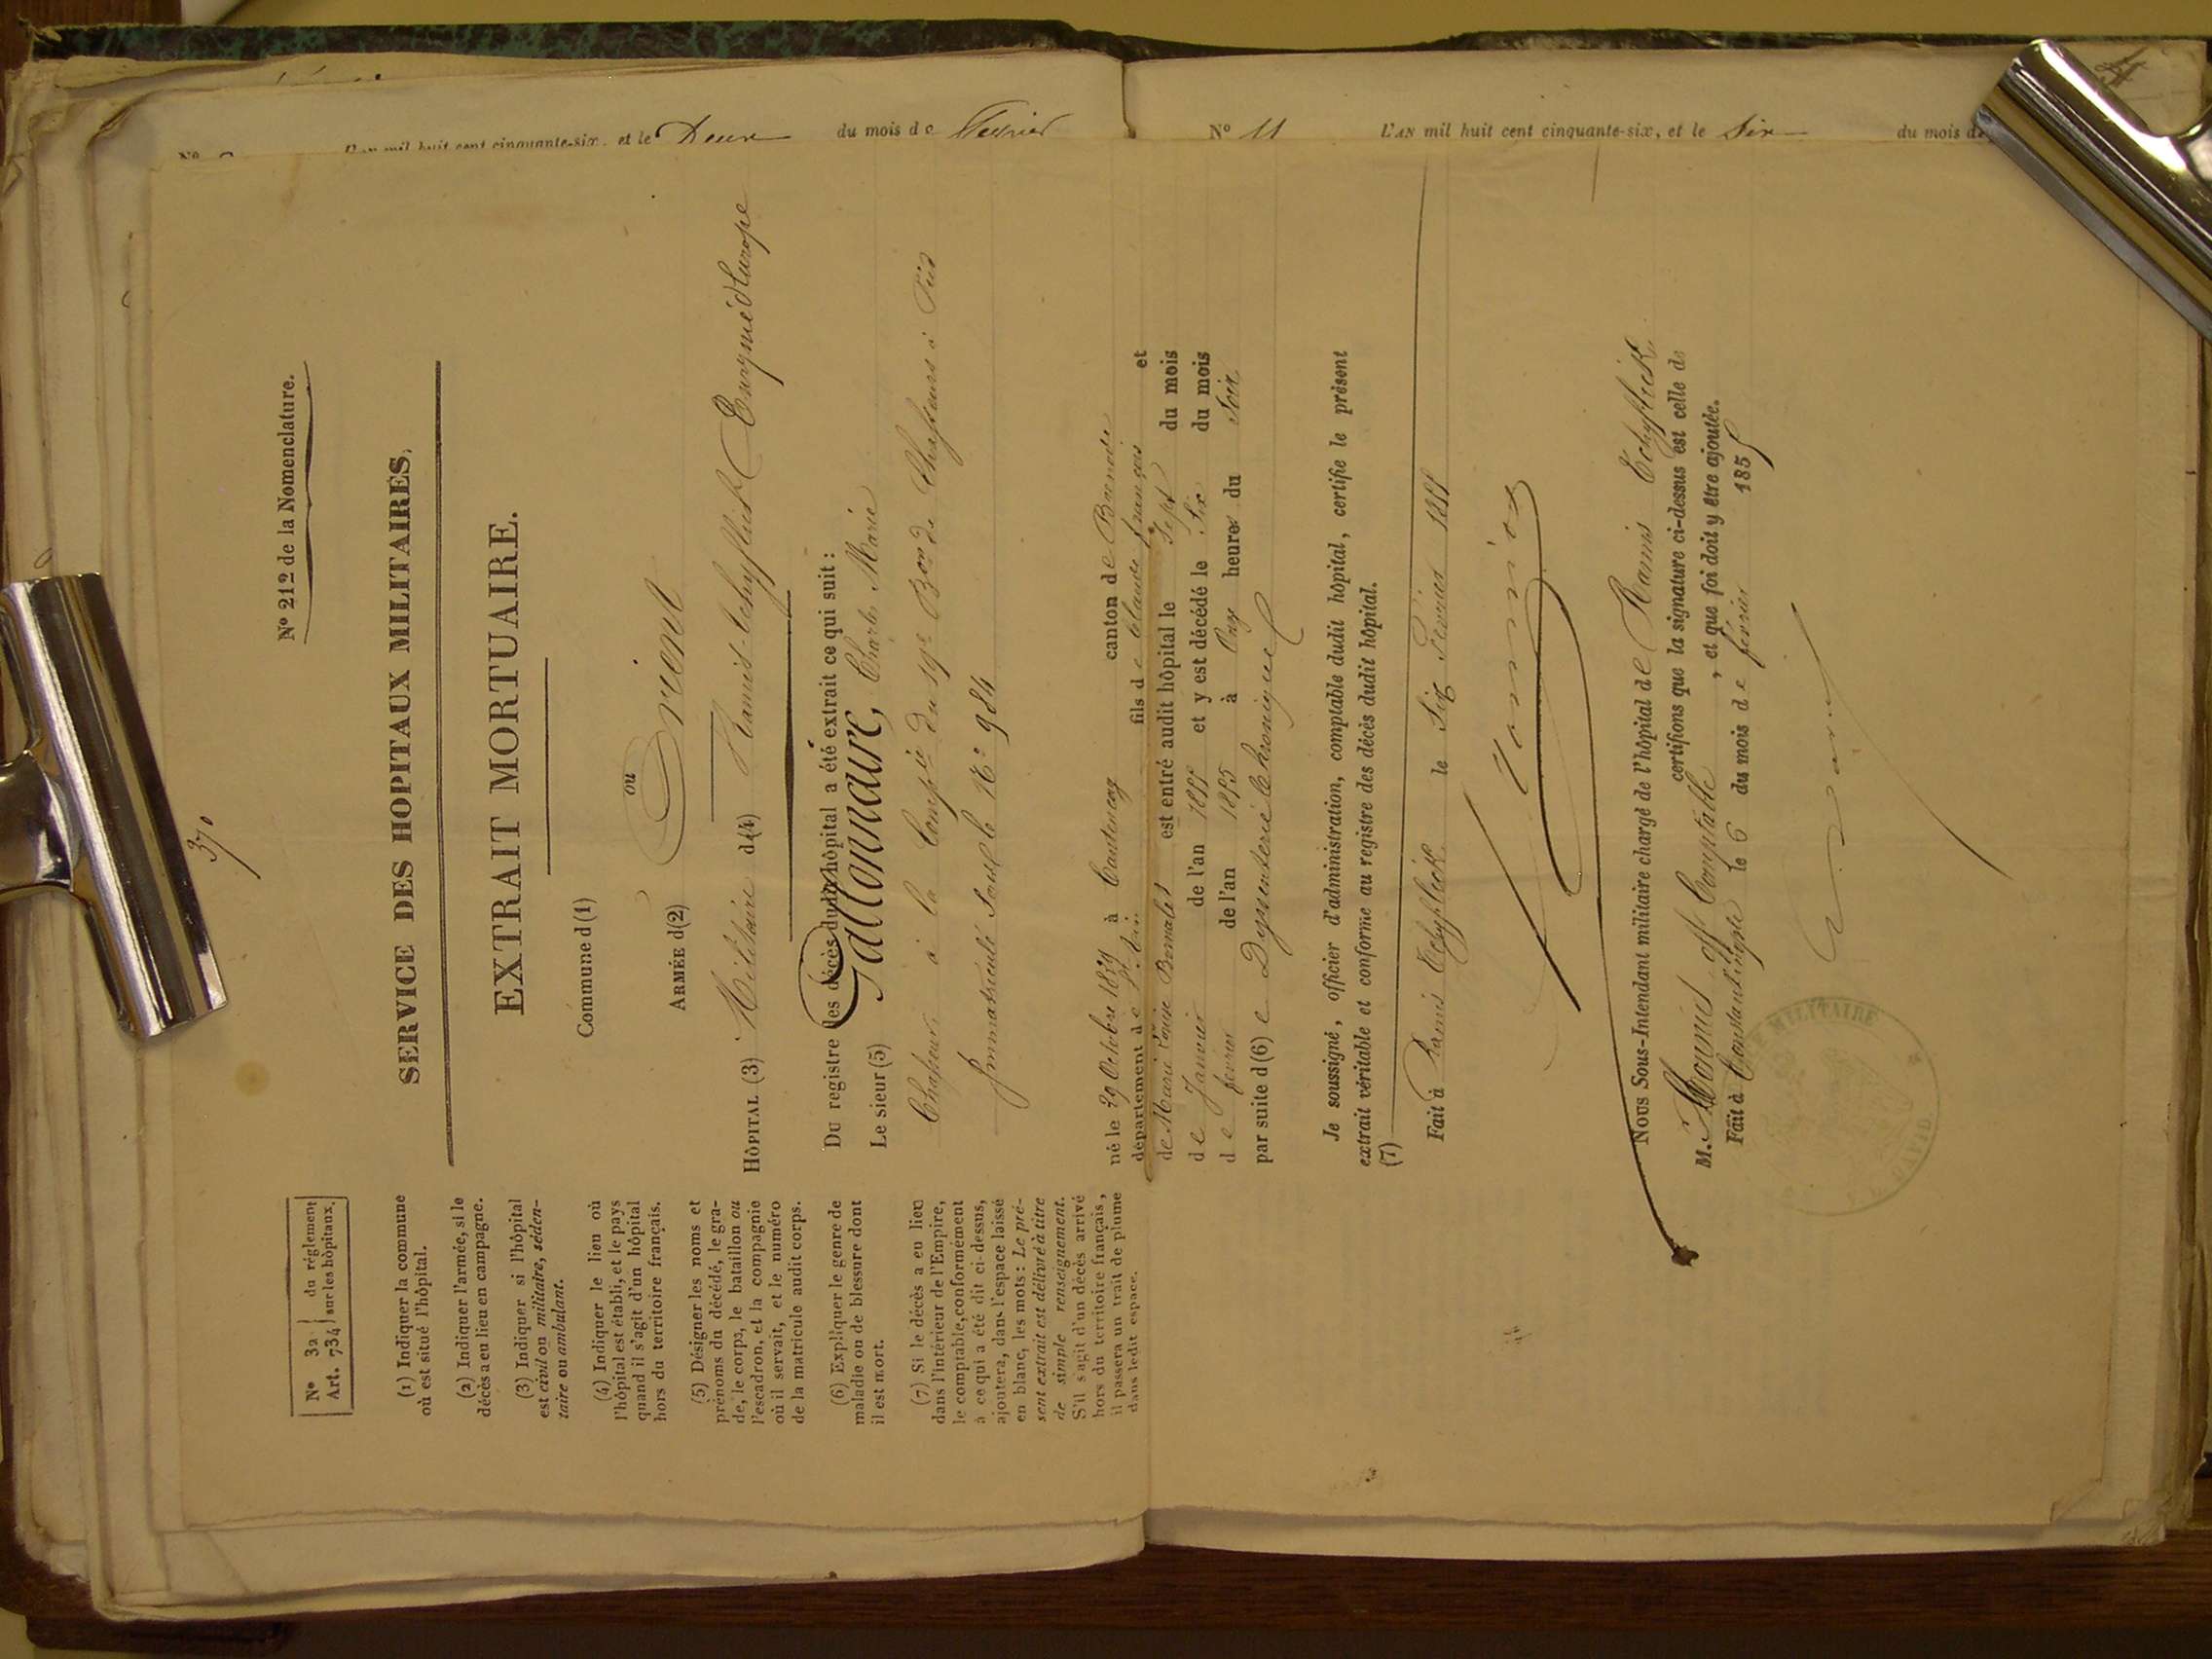 du mois de Fevrier
L'an mil huit cent cinquante-six, et le Deux
N° 11
L'AN mil huit cent cinquante-six, et le Six
du mois de
370
N° 212 de la Nomenclature.
N° 32 Art. 734 du réglement sur les hôpitaux.
SERVICE DES HOPITAUX MILITAIRES.
EXTRAIT MORTUAIRE.
Commune d(1)
ou
ARMÉE d(2) Orient
HÔPITAL (3) Militaire d(4) Ramis-Tchyflick Turquie d'Europe
Du registre des décès dudit hôpital a été extrait ce qui suit :
Le sieur (5) Jallonnaure, Charles Marie
Chasseur à la Compie du 19e Bon de Chasseurs à Pied
Immatriculé sous le No 984
né le 29 Octobre à canton de
département de fils de Claude françois
et
de Marie est entré audit hôpital le Sept du mois
de Janvier de l'an 1855 et y est décédé le Six du mois
de février de l'an 1855 à Onze heures du Soir
par suite d(6) e Dyssenterie Chronique
Je soussigné, officier d'administration, comptable dudit hôpital, certifie le présent
extrait véritable et conforme au registre des décès dudit hôpital.
(7)
Fait à Ramis Tchyflick le Six Février 1855
Nous Sous-Intendant militaire chargé de l'hôpital de Ramis Tchyflick
certifions que la signature ci-dessus est celle de
M. off Comptable, et que foi doit y être ajoutée.
Fait à Constantinople le 6 du mois de février 1855
MILITAIRE
(1) Indiquer la commune
où est situé l'hôpital.
(2) Indiquer l'armée, si le
décès a eu lieu en campagne.
(3) Indiquer si l'hôpital
est civil ou militaire, séden-
taire ou ambulant.
(4) Indiquer le lieu où
l'hôpital est établi, et le pays
quand il s'agit d'un hôpital
hors du territoire français.
(5) Désigner les noms et
prénoms du décédé, le gra-
de, le corps, le bataillon ou
l'escadron, et la compagnie
où il servait, et le numéro
de la matricule audit corps.
(6) Expliquer le genre de
maladie ou de blessure dont
il est mort.
(7) Si le décès a eu lieu
dans l'intérieur de l'Empire,
le comptable, conformément
à ce qui a été dit ci-dessus,
ajoutera, dans l'espace laissé
en blanc, les mots : Le pré-
sent extrait est délivré à titre
de simple renseignement.
S'il s'agit d'un décès arrivé
hors du territoire français,
il passera un trait de plume
dans ledit espace.